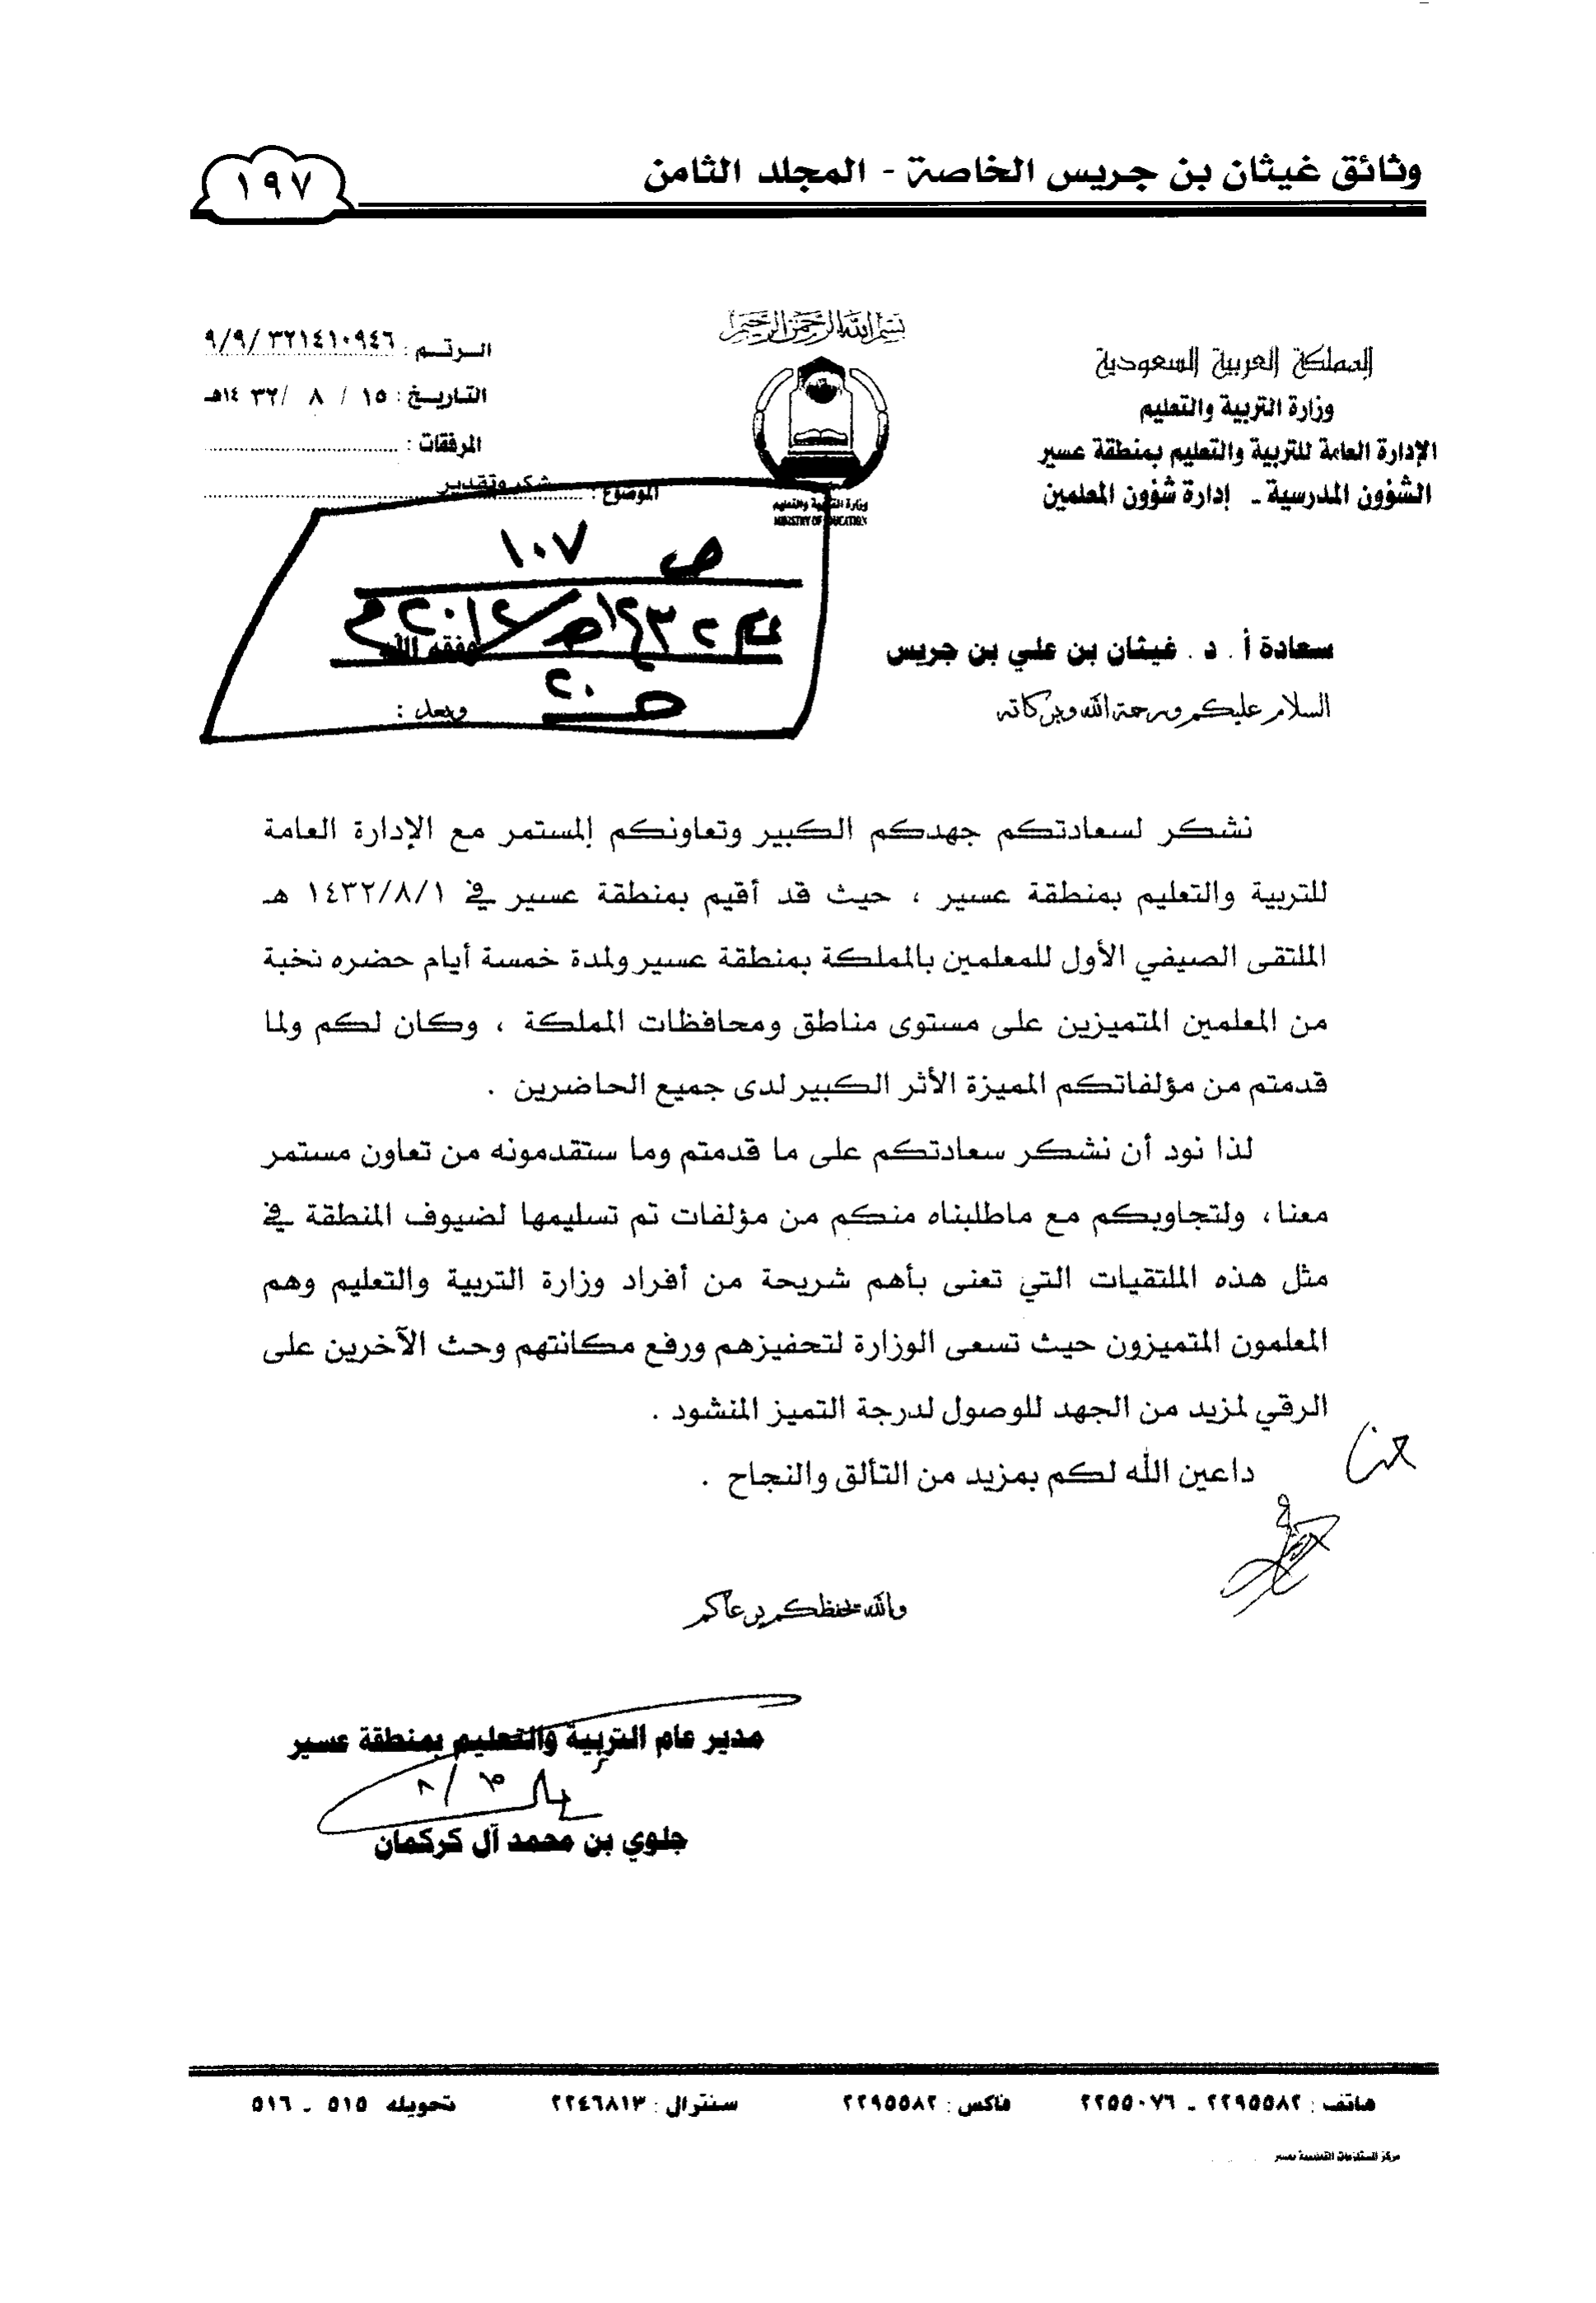 وثائق غيثان بن جريس الخاصة - المجلد الثامن
١٩٧
بسم الله الرحمن الرحيم
المملكة العربية السعودية
وزارة التربية والتعليم
الإدارة العامة للتربية والتعليم بمنطقة عسير
الشؤون المدرسية - إدارة شؤون المعلمين
وزارة التربية والتعليم
MINISTRY OF EDUCATION
الرقم : ٩/٩/٣٢١٤١٠٩٤٦
التاريخ : ١٥ / ٨ /١٤٣٢هـ
المرفقات :
الموضوع : شكر وتقدير
ص ١٠٧
سعادة أ . د . غيثان بن علي بن جريس وفقه الله
السلام عليكم ورحمة الله وبركاته وبعد :
نشكر لسعادتكم جهدكم الكبير وتعاونكم المستمر مع الإدارة العامة
للتربية والتعليم بمنطقة عسير ، حيث قد أقيم بمنطقة عسير في ١٤٣٢/٨/١ هـ
الملتقى الصيفي الأول للمعلمين بالمملكة بمنطقة عسير ولمدة خمسة أيام حضره نخبة
من المعلمين المتميزين على مستوى مناطق ومحافظات المملكة ، وكان لكم ولما
قدمتم من مؤلفاتكم المميزة الأثر الكبير لدى جميع الحاضرين .
لذا نود أن نشكر سعادتكم على ما قدمتم وما ستقدمونه من تعاون مستمر
معنا، ولتجاوبكم مع ماطلبناه منكم من مؤلفات تم تسليمها لضيوف المنطقة في
مثل هذه الملتقيات التي تعنى بأهم شريحة من أفراد وزارة التربية والتعليم وهم
المعلمون المتميزون حيث تسعى الوزارة لتحفيزهم ورفع مكانتهم وحث الآخرين على
الرقي لمزيد من الجهد للوصول لدرجة التميز المنشود .
داعين الله لكم بمزيد من التألق والنجاح .
والله يحفظكم ويرعاكم
مدير عام التربية والتعليم بمنطقة عسير
جلوي بن محمد آل كركمان
هاتف : ٢٢٩٥٥٨٢ - ٢٢٥٥٠٧٦ فاكس : ٢٢٩٥٥٨٢ سنترال : ٢٢٤٦٨١٣ تحويله ٥١٥ - ٥١٦